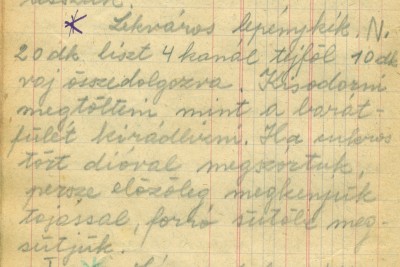 Lekváros lepénykék. N.
20 dk liszt 4 kanál tejföl 10 dk
vaj összedolgozva. Kisodorni
megtölteni mint a barát-
fülét kirádlizni. Ha cukros
tört dióval megszortuk,
persze előzőleg megkenjük
tojással, forró sütőbe meg-
sütjük.